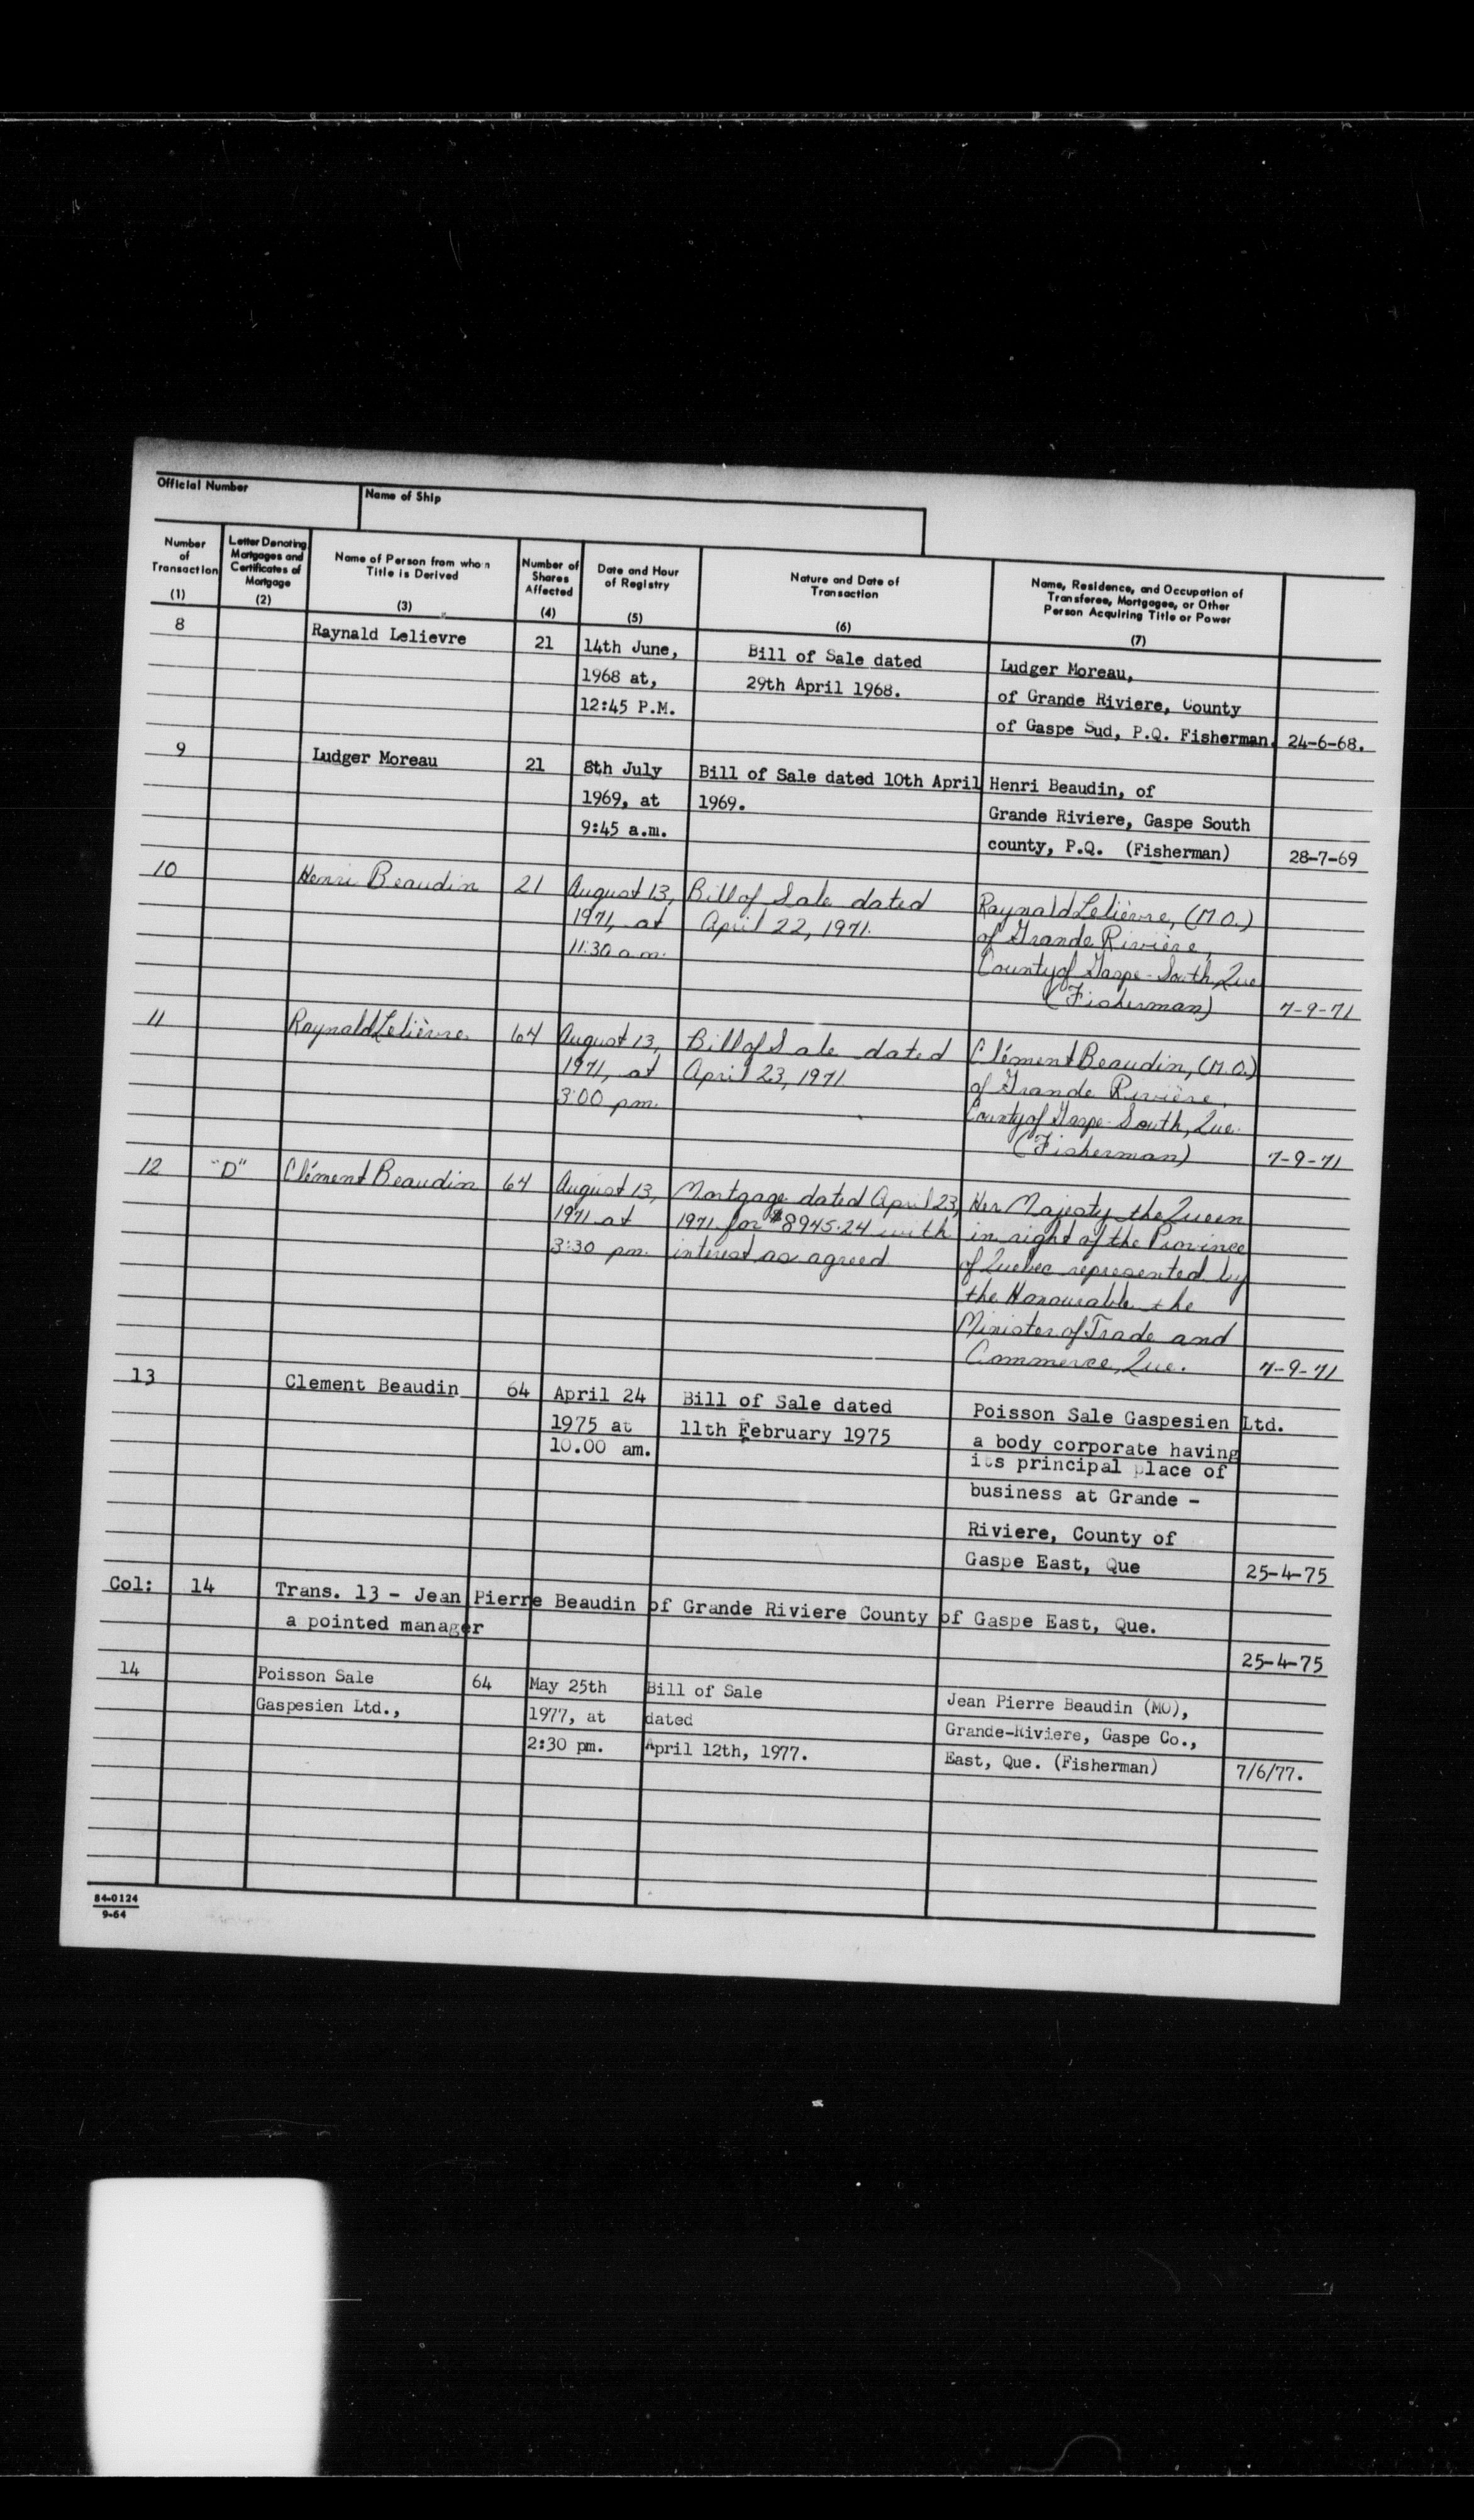 Official Number
Name of Ship
Number of Transaction (1)
Letter Denoting Mortgages and Certificates of Mortgage (2)
Name of Person from whom Title is Derived (3)
Number of Shares Affected (4)
Date and Hour of Registry (5)
Nature and Date of Transaction (6)
Name, Residence, and Occupation of Transferee, Mortgagee, or Other Person Acquiring Title or Power (7)
8 Raynald Lelievre 21 14th June, Bill of Sale dated Ludger Moreau,
1968 at, 29th April 1968. of Grande Riviere, County
12:45 P.M. of Gaspe Sud, P.Q. Fisherman. 24-6-68.
9 Ludger Moreau 21 8th July Bill of Sale dated 10th April Henri Beaudin, of
1969, at 1969. Grande Riviere, Gaspe South
9:45 a.m. county, P.Q. (Fisherman) 28-7-69
10 Henri Beaudin 21 August 13, Bill of Sale dated Raynald Lelièvre, (M.O.)
1971, at April 22, 1971. of Grande Rivière,
11:30 a.m. County of Gaspe-South, Que
(Fisherman) 7-9-71
11 Raynald Lelièvre 64 August 13, Bill of Sale dated Clément Beaudin, (M.O.)
1971, at April 23, 1971 of Grande Rivière,
3:00 pm. County of Gaspe-South, Que.
(Fisherman) 7-9-71
12 "D" Clément Beaudin 64 August 13, Mortgage dated April 23, Her Majesty the Queen
1971 at 1971 for $8945.24 with in right of the Province
3:30 pm. interest as agreed. of Quebec represented by
the Honourable the
Minister of Trade and
Commerce, Que. 7-9-71
13 Clement Beaudin 64 April 24 Bill of Sale dated Poisson Sale Gaspesien Ltd.
1975 at 11th February 1975 a body corporate having
10.00 am. its principal place of
business at Grande -
Riviere, County of
Gaspe East, Que 25-4-75
Col: 14 Trans. 13 - Jean Pierre Beaudin of Grande Riviere County of Gaspe East, Que.
a pointed manager
25-4-75
14 Poisson Sale 64 May 25th Bill of Sale Jean Pierre Beaudin (MO),
Gaspesien Ltd., 1977, at dated Grande-Riviere, Gaspe Co.,
2:30 pm. April 12th, 1977. East, Que. (Fisherman) 7/6/77.
84-0124
9-64